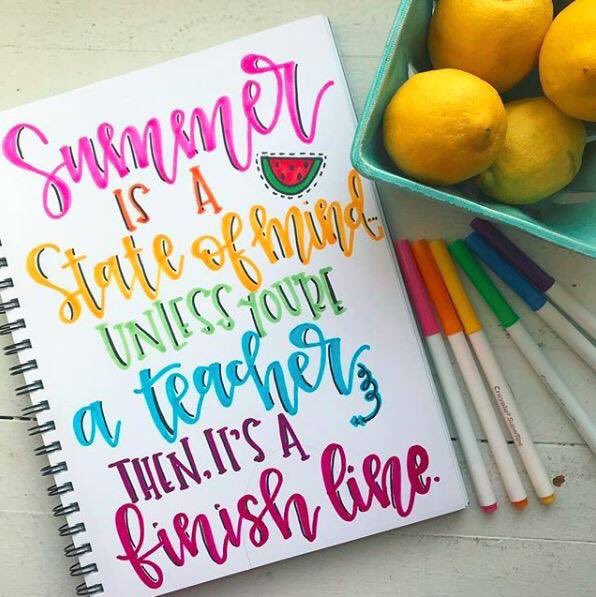 Summer
IS A
State of mind...
UNLESS YOU'RE
a teacher,
THEN, IT'S A
finish line.
Crayola SuperTips